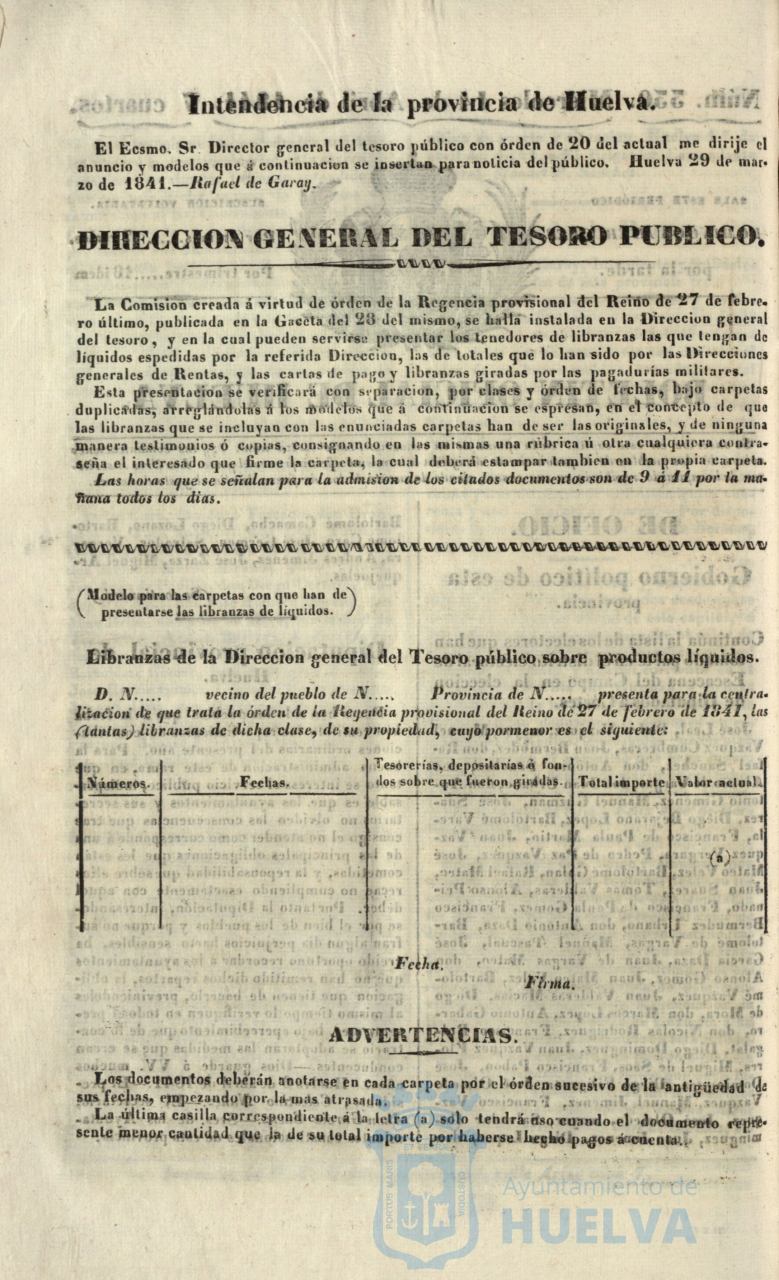 Intendencia de la provincia de Huelva.
El Ecsmo. Sr. Director general del tesoro público con órden de 20 del actual me dirije el
anuncio y modelos que á continuacion se insertan para noticia del público. Huelva 29 de mar-
zo de 1841.—Rafael de Garay.
DIRECCION GENERAL DEL TESORO PUBLICO.
La Comision creada á virtud de órden de la Regencia provisional del Reino de 27 de febre-
ro último, publicada en la Gaceta del 28 del mismo, se halla instalada en la Direccion general
del tesoro, y en la cual pueden servirse presentar los tenedores de libranzas las que tengan de
líquidos espedidas por la referida Direccion, las de totales que lo han sido por las Direcciones
generales de Rentas, y las cartas de pago y libranzas giradas por las pagadurías militares.
Esta presentacion se verificará con separacion, por clases y órden de fechas, bajo carpetas
duplicadas, arreglándolas á los modelos que á continuacion se espresan, en el concepto de que
las libranzas que se incluyan con las enunciadas carpetas han de ser las originales, y de ninguna
manera testimonios ó copias, consignando en las mismas una rúbrica ú otra cualquiera contra-
seña el interesado que firme la carpeta, la cual deberá estampar tambien en la propia carpeta.
Las horas que se señalan para la admision de los citados documentos son de 9 á 11 por la ma-
ñana todos los dias.
(Modelo para las carpetas con que han de
presentarse las libranzas de líquidos.)
Libranzas de la Direccion general del Tesoro público sobre productos líquidos.
D. N..... vecino del pueblo de N.... Provincia de N..... presenta para la centra-
lizacion de que trata la órden de la Regencia provisional del Reino de 27 de febrero de 1841, las
(tantas) libranzas de dicha clase, de su propiedad, cuyo pormenor es el siguiente:
Números. Fechas. Tesorerías, depositarías ó fon-
dos sobre que fueron giradas. Total importe Valor actual.
(a)
Fecha.
Firma.
ADVERTENCIAS.
Los documentos deberán anotarse en cada carpeta por el órden sucesivo de la antigüedad de
sus fechas, empezando por la mas atrasada.
La última casilla correspondiente á la letra (a) solo tendrá uso cuando el documento repre-
sente menor cantidad que la de su total importe por haberse hecho pagos á cuenta.
PORTUS MARIS
Ayuntamiento de
HUELVA